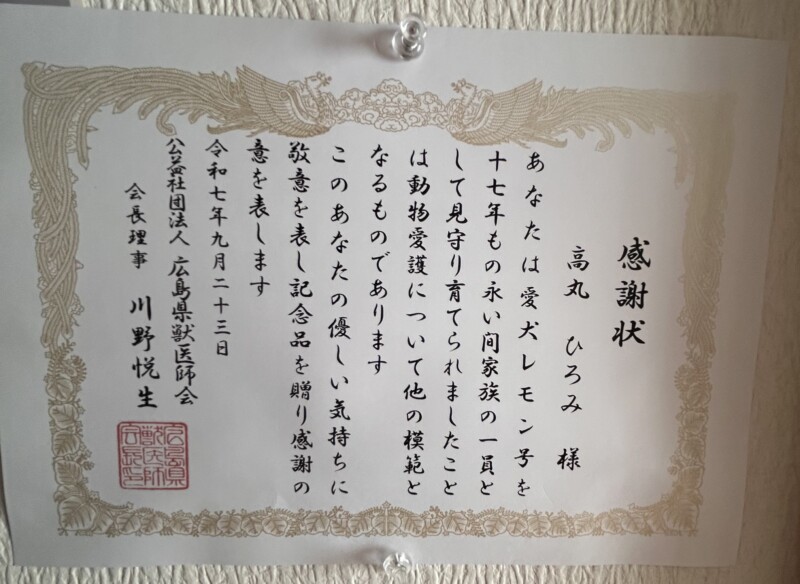 感謝状
高丸 ひろみ 様
あなたは愛犬レモン号を
十七年もの永い间家族の一員と
して見守り育てられましたこと
は動物愛護について他の模範と
なるものであります
このあなたの優しい気持ちに
敬意を表し記念品を贈り感謝の
意を表します
令和七年九月二十三日
公益社団法人 広島県獣医師会
会長理事 川野悦生
広島県
獣医師
会長印